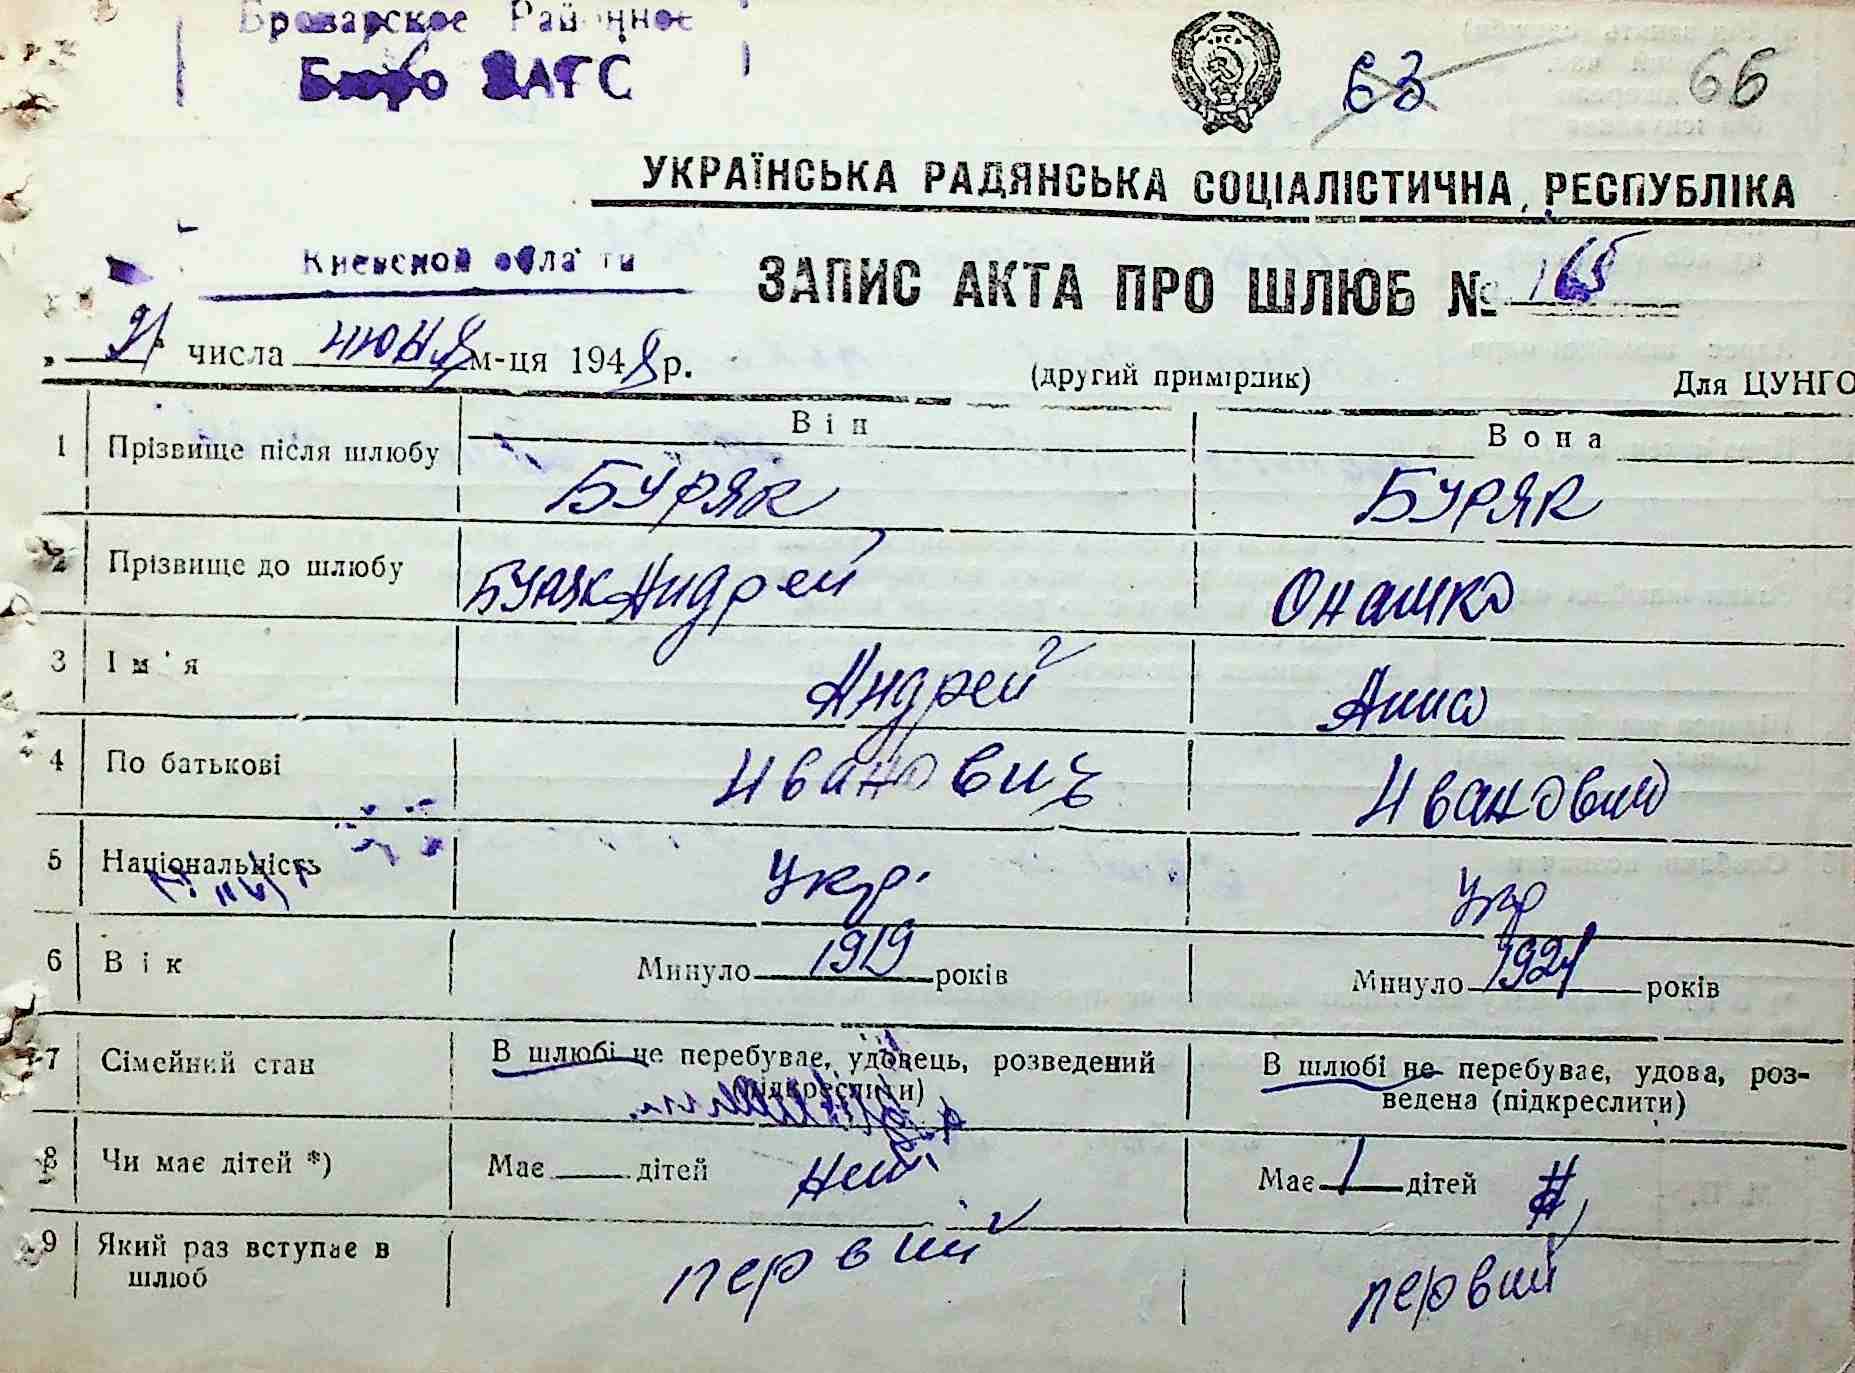 Броварское Районное
Бюро ЗАГС
63 66
УКРАЇНСЬКА РАДЯНСЬКА СОЦІАЛІСТИЧНА РЕСПУБЛІКА
Киевской области
ЗАПИС АКТА ПРО ШЛЮБ № 165
"21" числа июня м-ця 1948 р.
(другий примірник)
Для ЦУНГО
Він Вона
1 Прізвище після шлюбу Буряк Буряк
2 Прізвище до шлюбу Буряк Андрей Онашко
3 Ім'я Андрей Анна
4 По батькові Иванович Ивановна
5 Національність Укр. Укр
6 Вік Минуло 1919 років Минуло 1921 років
7 Сімейний стан В шлюбі не перебуває, удовець, розведений В шлюбі не перебуває, удова, роз-
(підкреслити) ведена (підкреслити)
8 Чи має дітей *) Має дітей нет Має 1 дітей
9 Який раз вступає в первий первий
шлюб